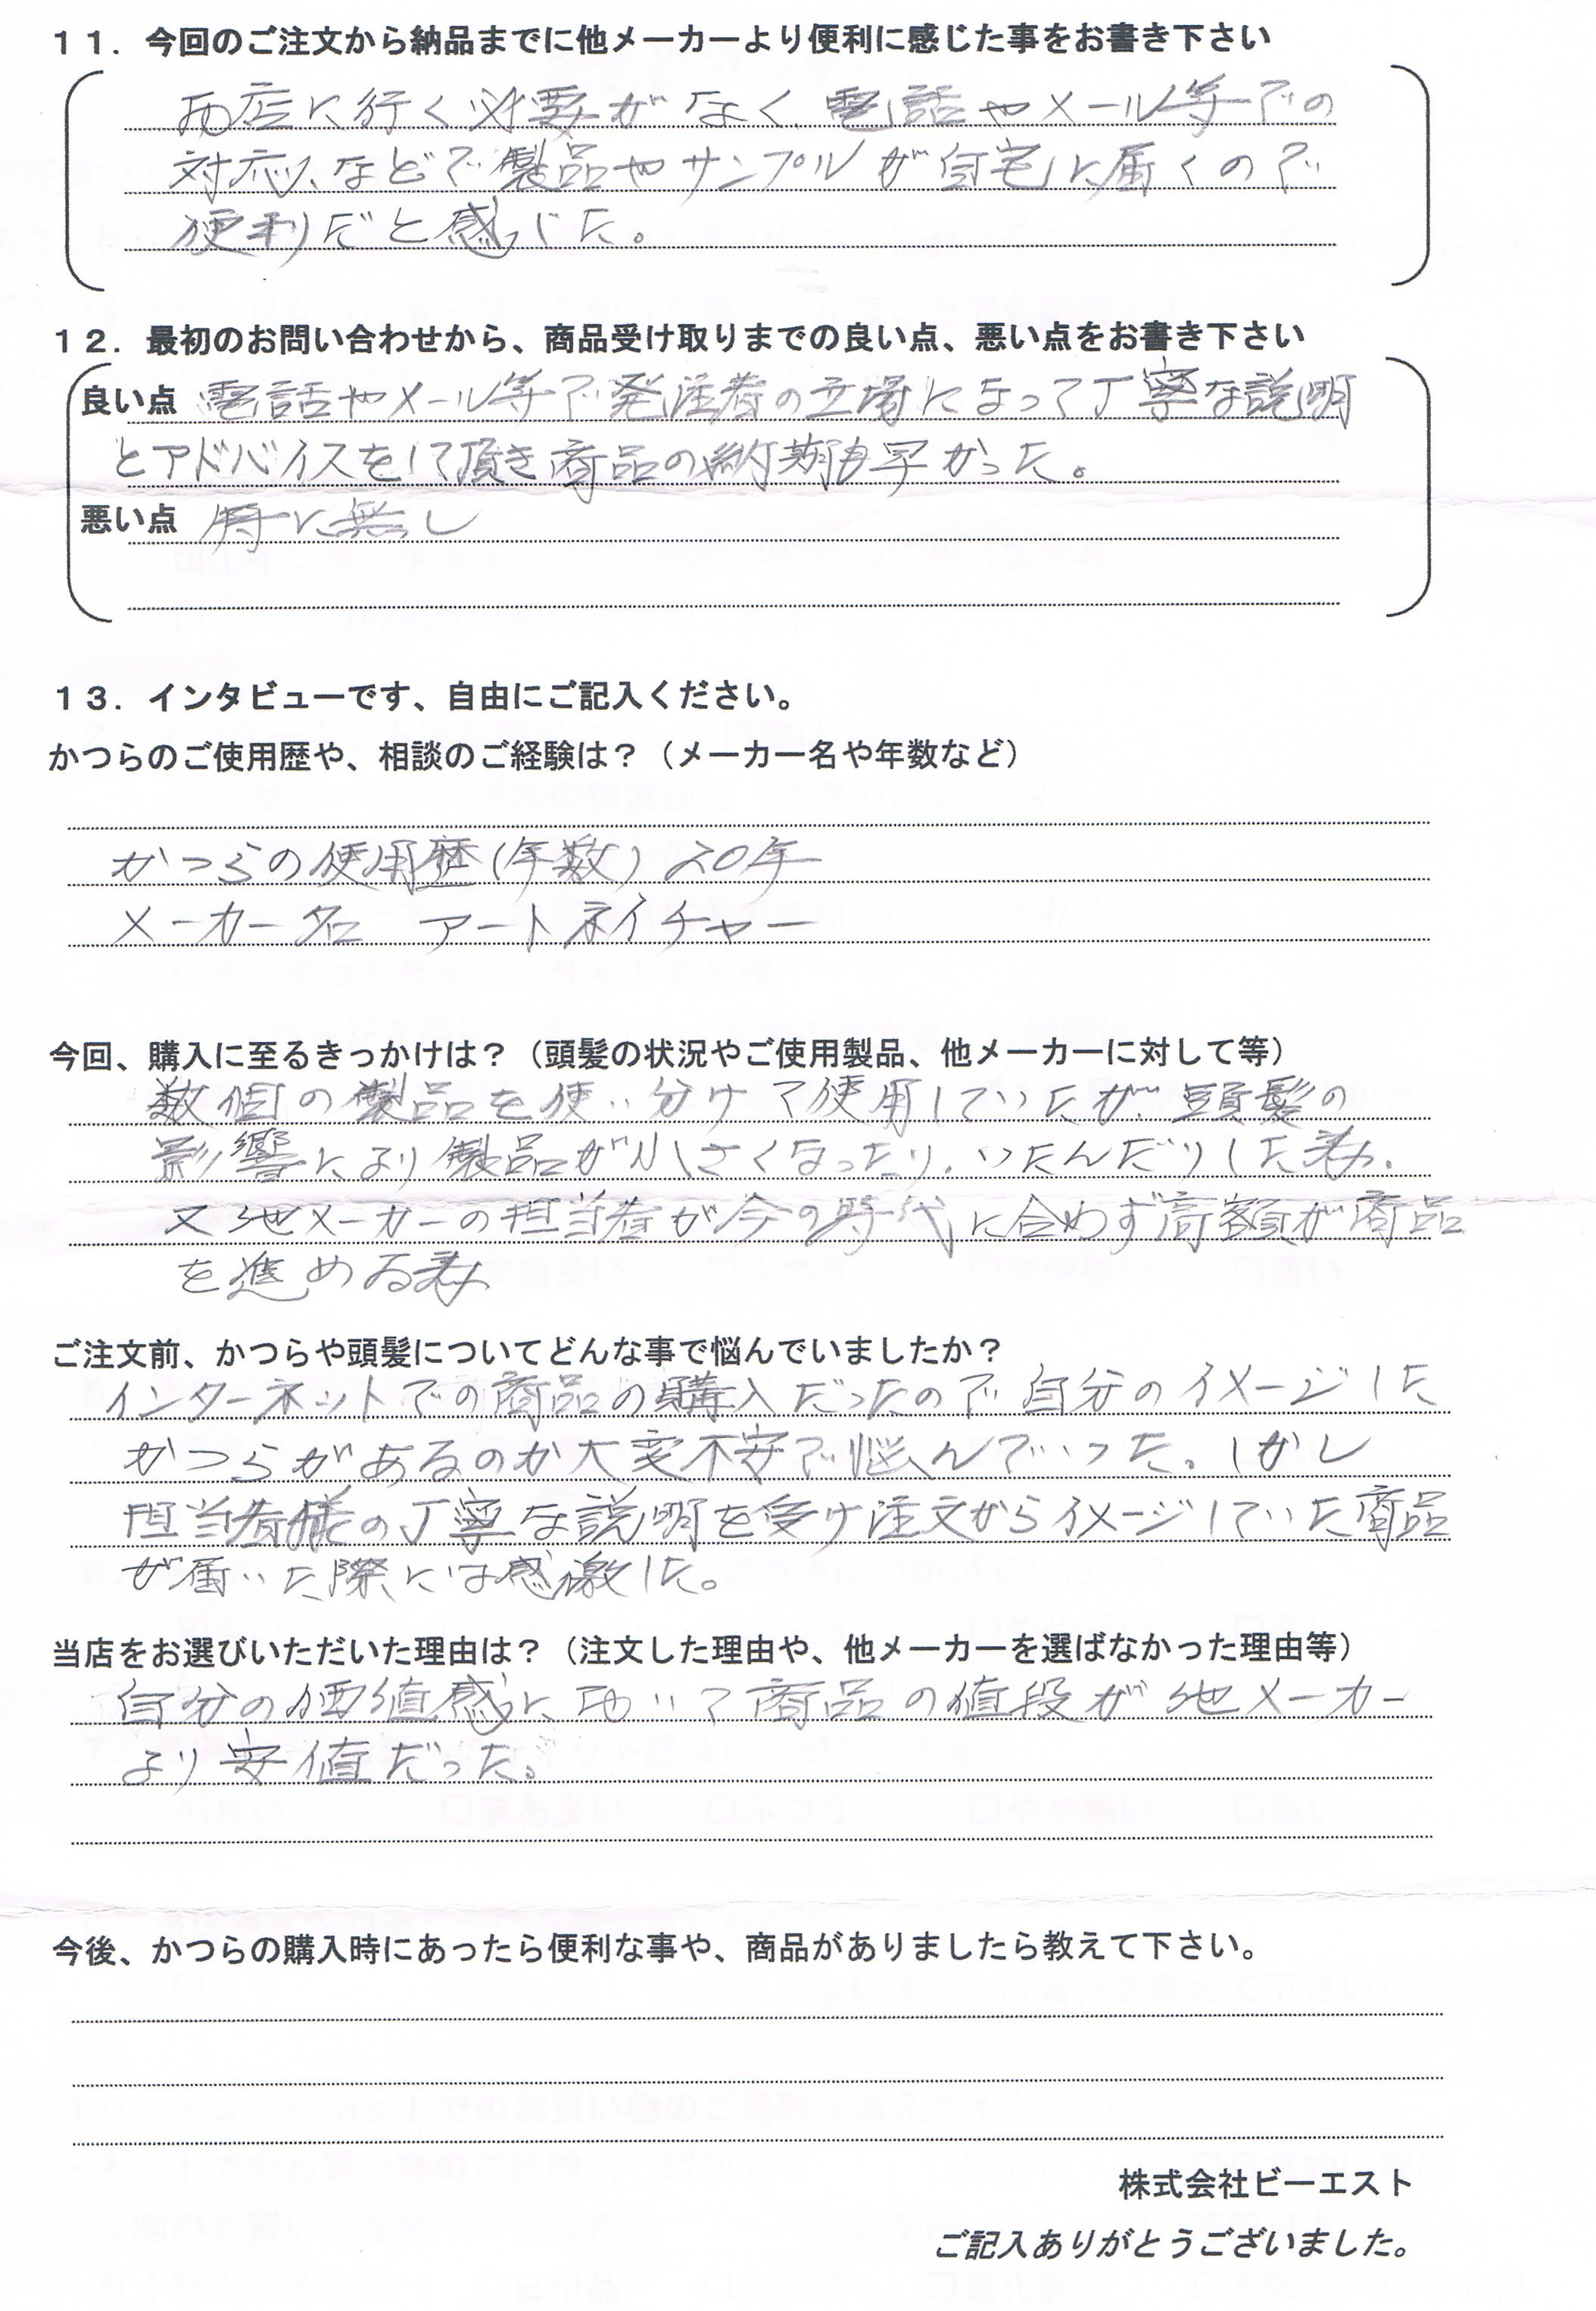 １１．今回のご注文から納品までに他メーカーより便利に感じた事をお書き下さい
お店に行く必要がなく、電話やメール等での
対応、などで製品やサンプルが自宅に届くので
便利だと感じた。
１２．最初のお問い合わせから、商品受け取りまでの良い点、悪い点をお書き下さい
良い点 電話やメール等で発注者の立場になって丁寧な説明
とアドバイスをして頂き商品の納期も早かった。
悪い点 特に無し
１３．インタビューです、自由にご記入ください。
かつらのご使用歴や、相談のご経験は？（メーカー名や年数など）
かつらの使用歴（年数）20年
メーカー名 アートネイチャー
今回、購入に至るきっかけは？（頭髪の状況やご使用製品、他メーカーに対して等）
数個の製品を使い分けて使用していたが、頭髪の
影響により製品が小さくなったり、いたんだりした為、
又他メーカーの担当者が今の時代に合わず高額が商品
を進める為
ご注文前、かつらや頭髪についてどんな事で悩んでいましたか？
インターネットでの商品の購入だったので自分のイメージした
かつらがあるのか大変不安で悩んでいった。しかし
担当者様の丁寧な説明を受け注文からイメージしていた商品
が届いた際には感激した。
当店をお選びいただいた理由は？（注文した理由や、他メーカーを選ばなかった理由等）
自分の価値感に於いて商品の値段が他メーカー
より安値だった。
今後、かつらの購入時にあったら便利な事や、商品がありましたら教えて下さい。
株式会社ビーエスト
ご記入ありがとうございました。